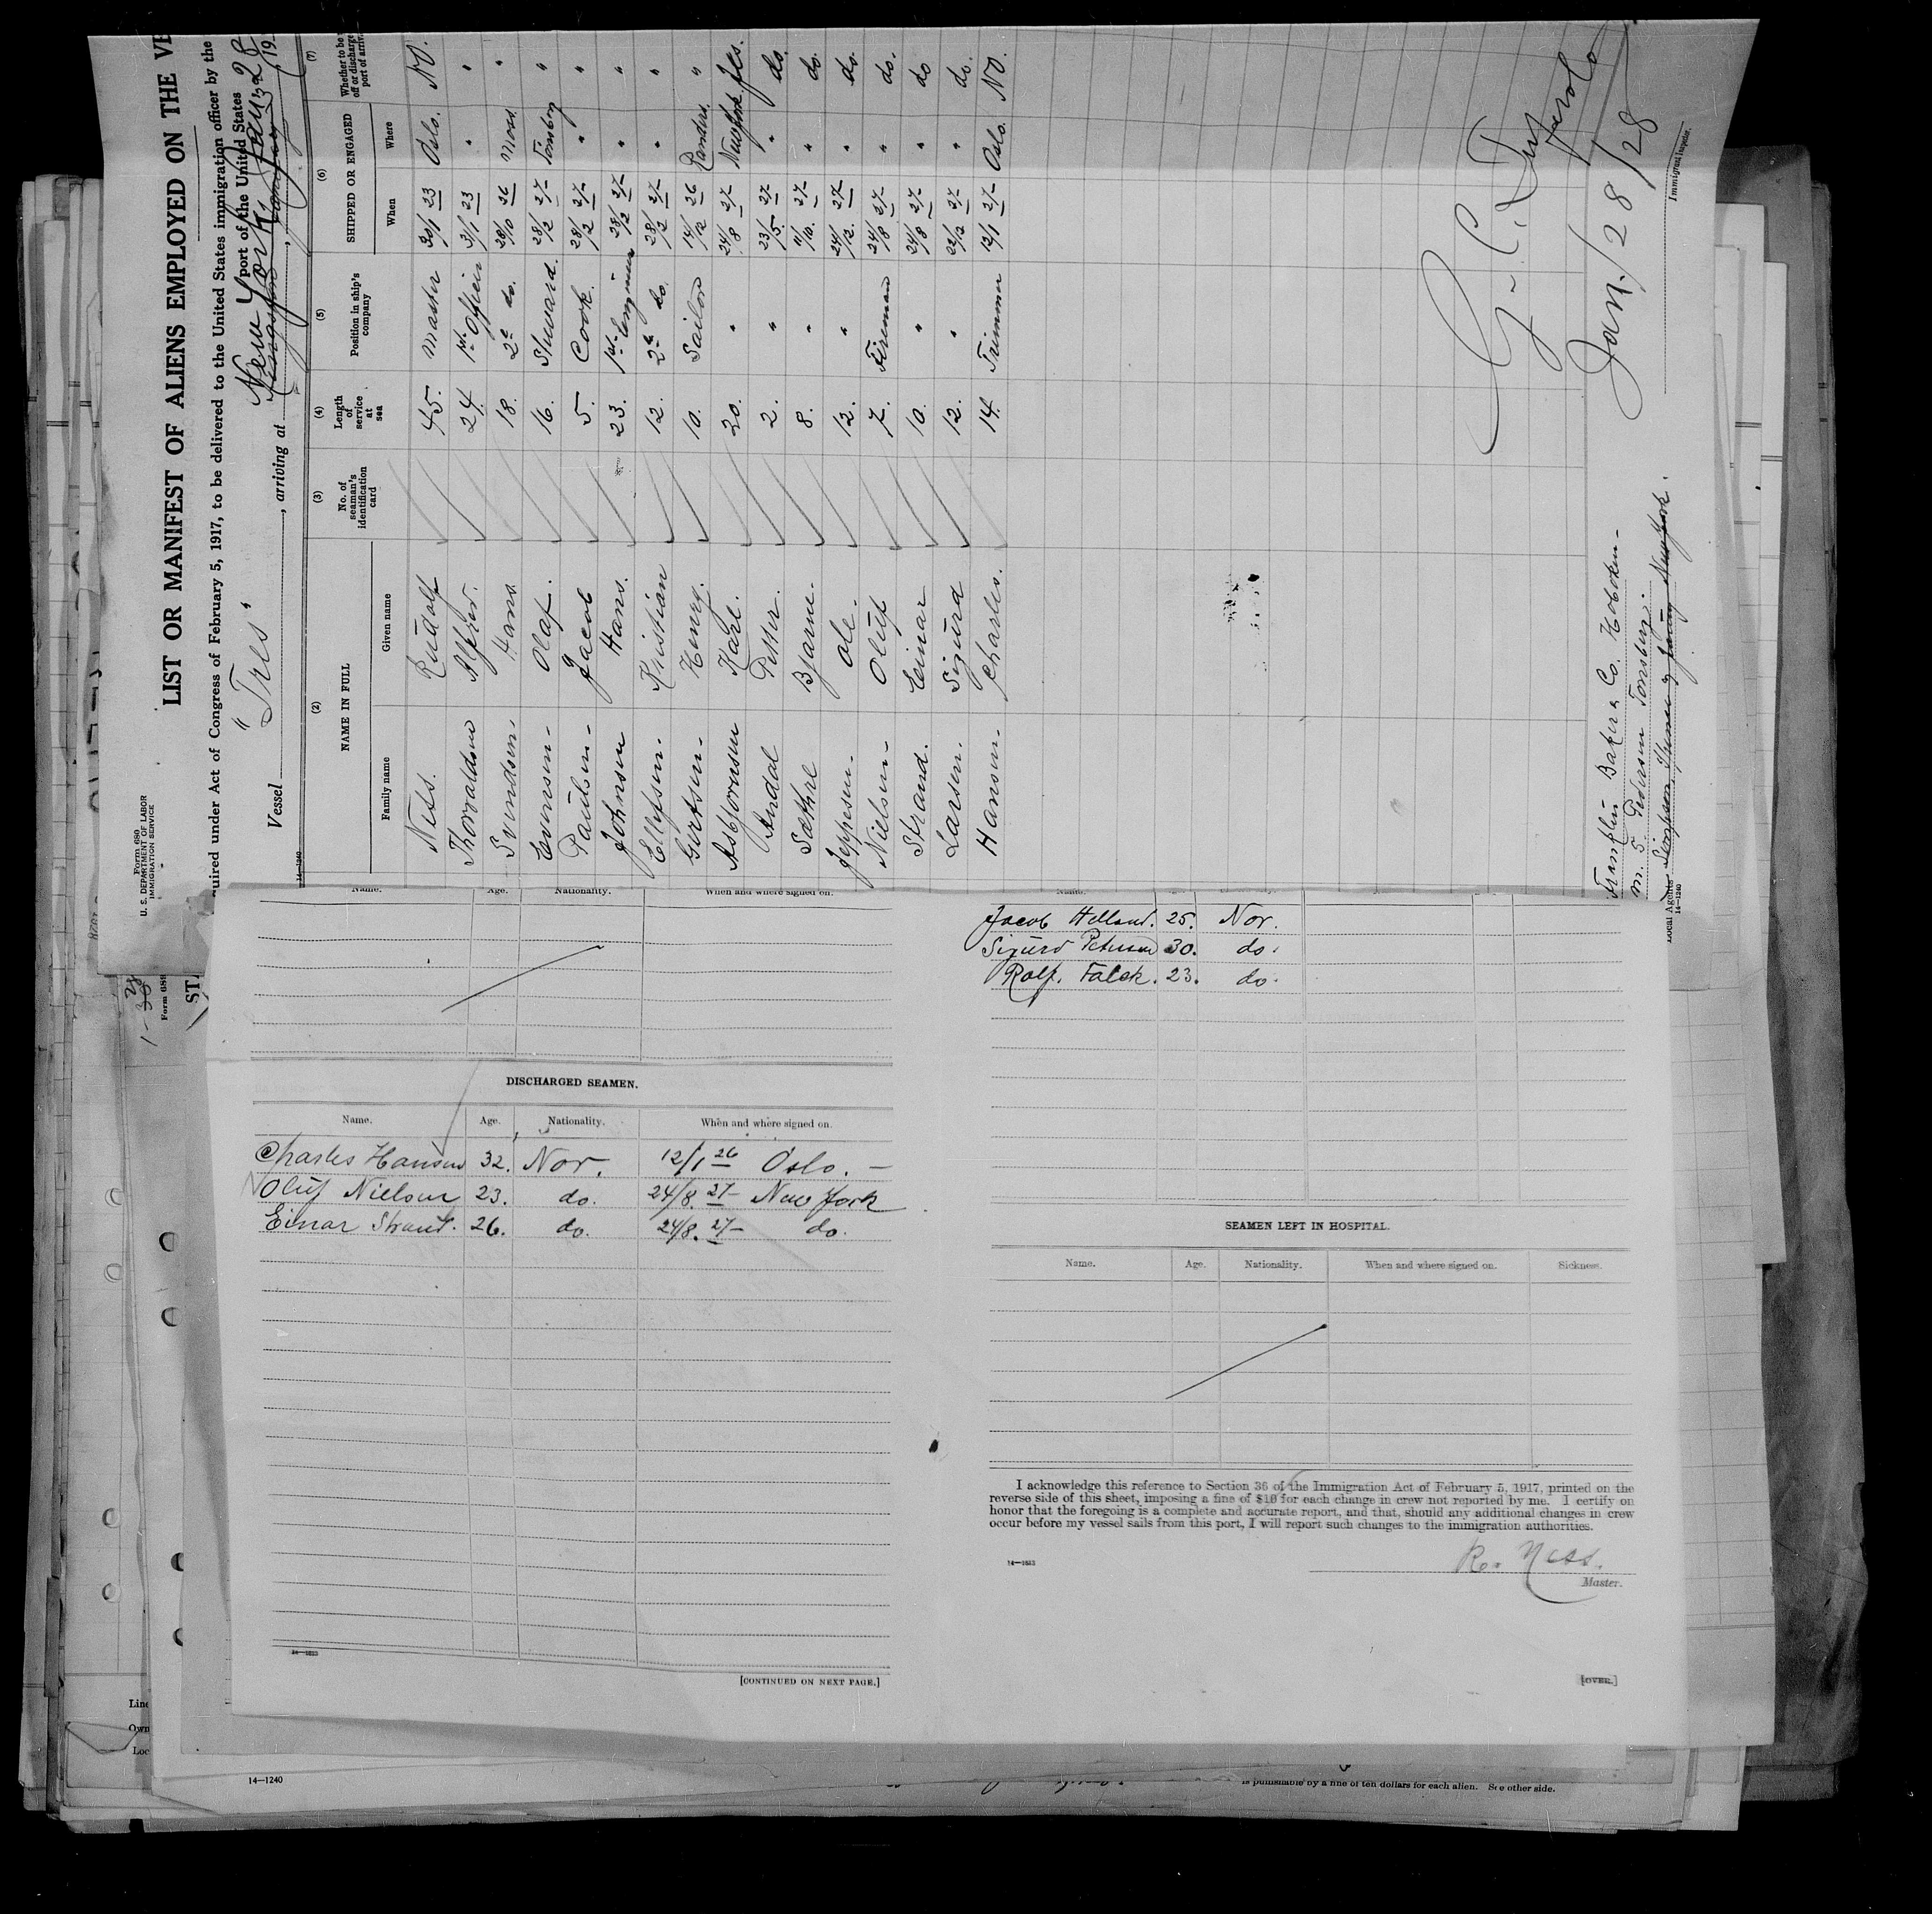 Form 680
U. S. DEPARTMENT OF LABOR
IMMIGRATION SERVICE
LIST OR MANIFEST OF ALIENS EMPLOYED ON THE
uired under Act of Congress of February 5, 1917, to be delivered to the United States immigration officer by the
port of the United States
Vessel "Tres", arriving at New York, Jany 28, 19
14—1240
(2) (3) (4) (5) (6) (7)
NAME IN FULL
Family name Given name
No. of seaman's identification card
Length of service at sea
Position in ship's company
SHIPPED OR ENGAGED
When Where
Whether to be
off or discharge
port of arriv
Ness. Rudolf 45. Master 30/1 23 Oslo. NO.
Thorvaldsen 24. 1st Officer 31/1 23 " "
Svendsen Hans 18. 2e do. 28/10 26 Moss "
Evensen- Olaf. 16. Steward. 28/12 27- Tönsberg "
Paulsen- Jacob 5. Cook. 28/12 27- " "
Johnsen Hans. 23. 28/12 27- " "
Ellefsen. Kristian 12. 2e do. 28/12 27- " "
Gertsen- Henry. 10. Sailor 14/12 26 Randers. "
Asbjornsen Karl. 20. " 24/8 27- New York. Yes.
Petter. 2. " 23/5. 27- " do.
Sæthre Bjarne. 8. " 11/10. 27- " do.
Jeppesen- Ole. 12. " 24/12. 27- " do.
Nielsen- Oluf 7. Fireman 24/8 27- " do.
Strand. Einar 10. " 24/8 27- " do
Larsen. Sigurd 12. " 22/12 27- " do.
Hansen- Charles. 14. Trimmer 12/1 27- Oslo. NO.
Jan. / 28 / 28
Immigrant Inspector.
Franklin Baker & Co. Hoboken-
M. S. Pedersen Tonsberg.
Local Agents
New York.
14—1240
Form 689
STA
Name. Age. Nationality. When and where signed on.
DISCHARGED SEAMEN.
Name. Age. Nationality. When and where signed on.
Charles Hansen 32. Nor. 12/1 26 Oslo. —
Oluf Nielsen 23. do. 24/8. 27- New York
Einar Strand. 26. do. 24/8. 27- do.
14—1833
[CONTINUED ON NEXT PAGE.]
Jacob Helland. 25. Nor.
Sigurd Petersen 30. do.
Rolf. Falck. 23. do.
SEAMEN LEFT IN HOSPITAL.
Name. Age. Nationality. When and where signed on. Sickness.
I acknowledge this reference to Section 36 of the Immigration Act of February 5, 1917, printed on the
reverse side of this sheet, imposing a fine of $10 for each change in crew not reported by me. I certify on
honor that the foregoing is a complete and accurate report, and that, should any additional changes in crew
occur before my vessel sails from this port, I will report such changes to the immigration authorities.
14—1833
R. Ness.
Master.
[OVER.]
Line
Own
Loc
14—1240
is punishable by a fine of ten dollars for each alien. See other side.